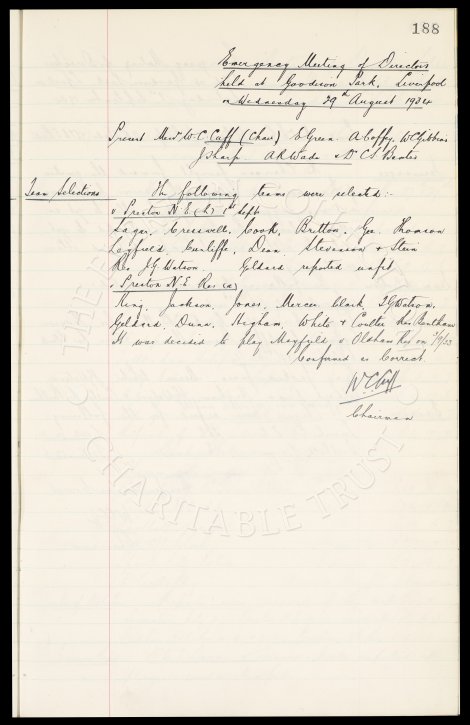 188
Emergency Meeting of Directors
held at Goodison Park, Liverpool
on Wednesday 29th August 1934
Present Messrs W.C. Cuff (Chair) E Green. A Coffey, W C Gibbins
J Sharp A R Wade & Dr C S Baxter
Team Selections The following teams were selected:-
v Preston N E (h) 1st Sept
Sagar, Cresswell, Cook, Britton, Gee, Thomson
Geldard Cunliffe, Dean, Stevenson & Stein
Res. J G Watson. Geldard reported unfit
v Preston N E Res (a)
King, Jackson, Jones, Mercer, Clark, T G Watson,
Geldard, Dunn, Higham, White & Coulter Res
It was decided to play v Oldham Res on
Confirmed as Correct
W C Cuff
Chairman
CHARITABLE TRUST